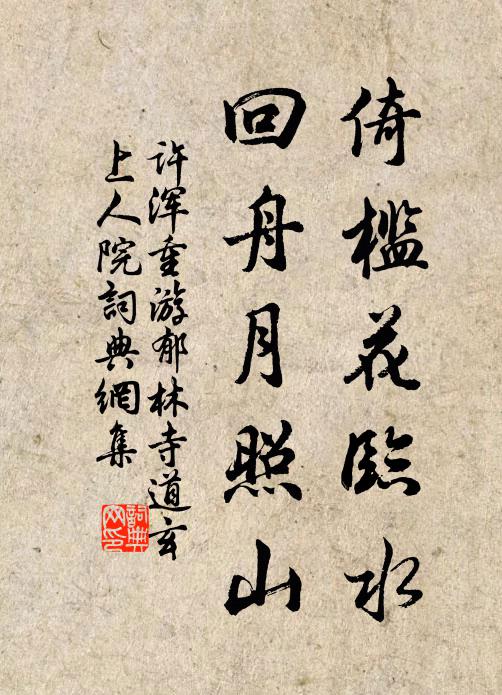 倚檻花臨水
回舟月照山
许浑重游郁林寺道玄
上人院詞典網集
詞典网印